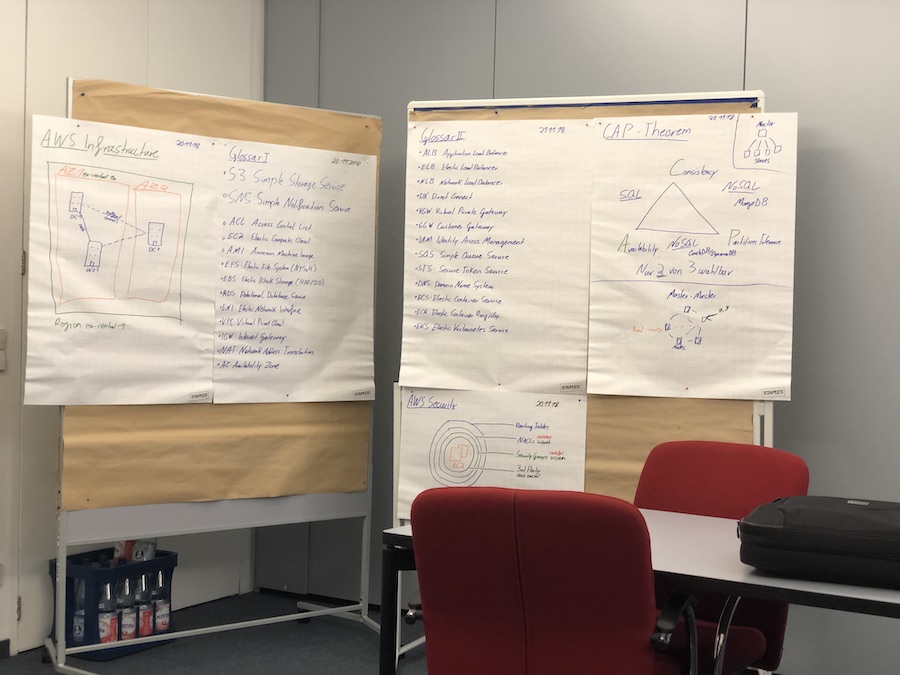 AWS Infrastructure
20.11.18
AZ 1
eu-central-1a
AZ 2
DC 1
DC 2
DC 1
Region eu-central-1
Glossar I
20.11.2018
S3 Simple Storage Service
SNS Simple Notification Service
ACL Access Control List
EC2 Elastic Compute Cloud
AMI Amazon Machine Image
EFS Elastic File System (NFSv4)
EBS Elastic Block Storage
RDS Relational Database Service
ENI Elastic Network Interface
VPC Virtual Private Cloud
IGW Internet Gateway
NAT Network Address Translation
AZ Availability Zone
STAPLES
Glossar II
21.11.18
ALB Application Load Balancer
ELB Elastic Load Balancer
NLB Network Load Balancer
DX Direct Connect
VGW Virtual Private Gateway
CGW Customer Gateway
IAM Identity Access Management
SQS Simple Queue Service
STS Secure Token Service
DNS Domain Name System
ECS Elastic Container Service
ECR Elastic Container Registry
EKS Elastic Kubernetes Service
STAPLES
CAP-Theorem
21.11.18
Master
Slaves
Consistency
SQL
NoSQL
MongoDB
Availability
NoSQL
CouchDB/DynamoDB
Partition Tolerance
Nur 2 von 3 wählbar
Master-Master
Nodes
STAPLES
AWS Security
20.11.18
Routing Tables
NACLs
Security Groups
3rd Party
EC2
STAPLES